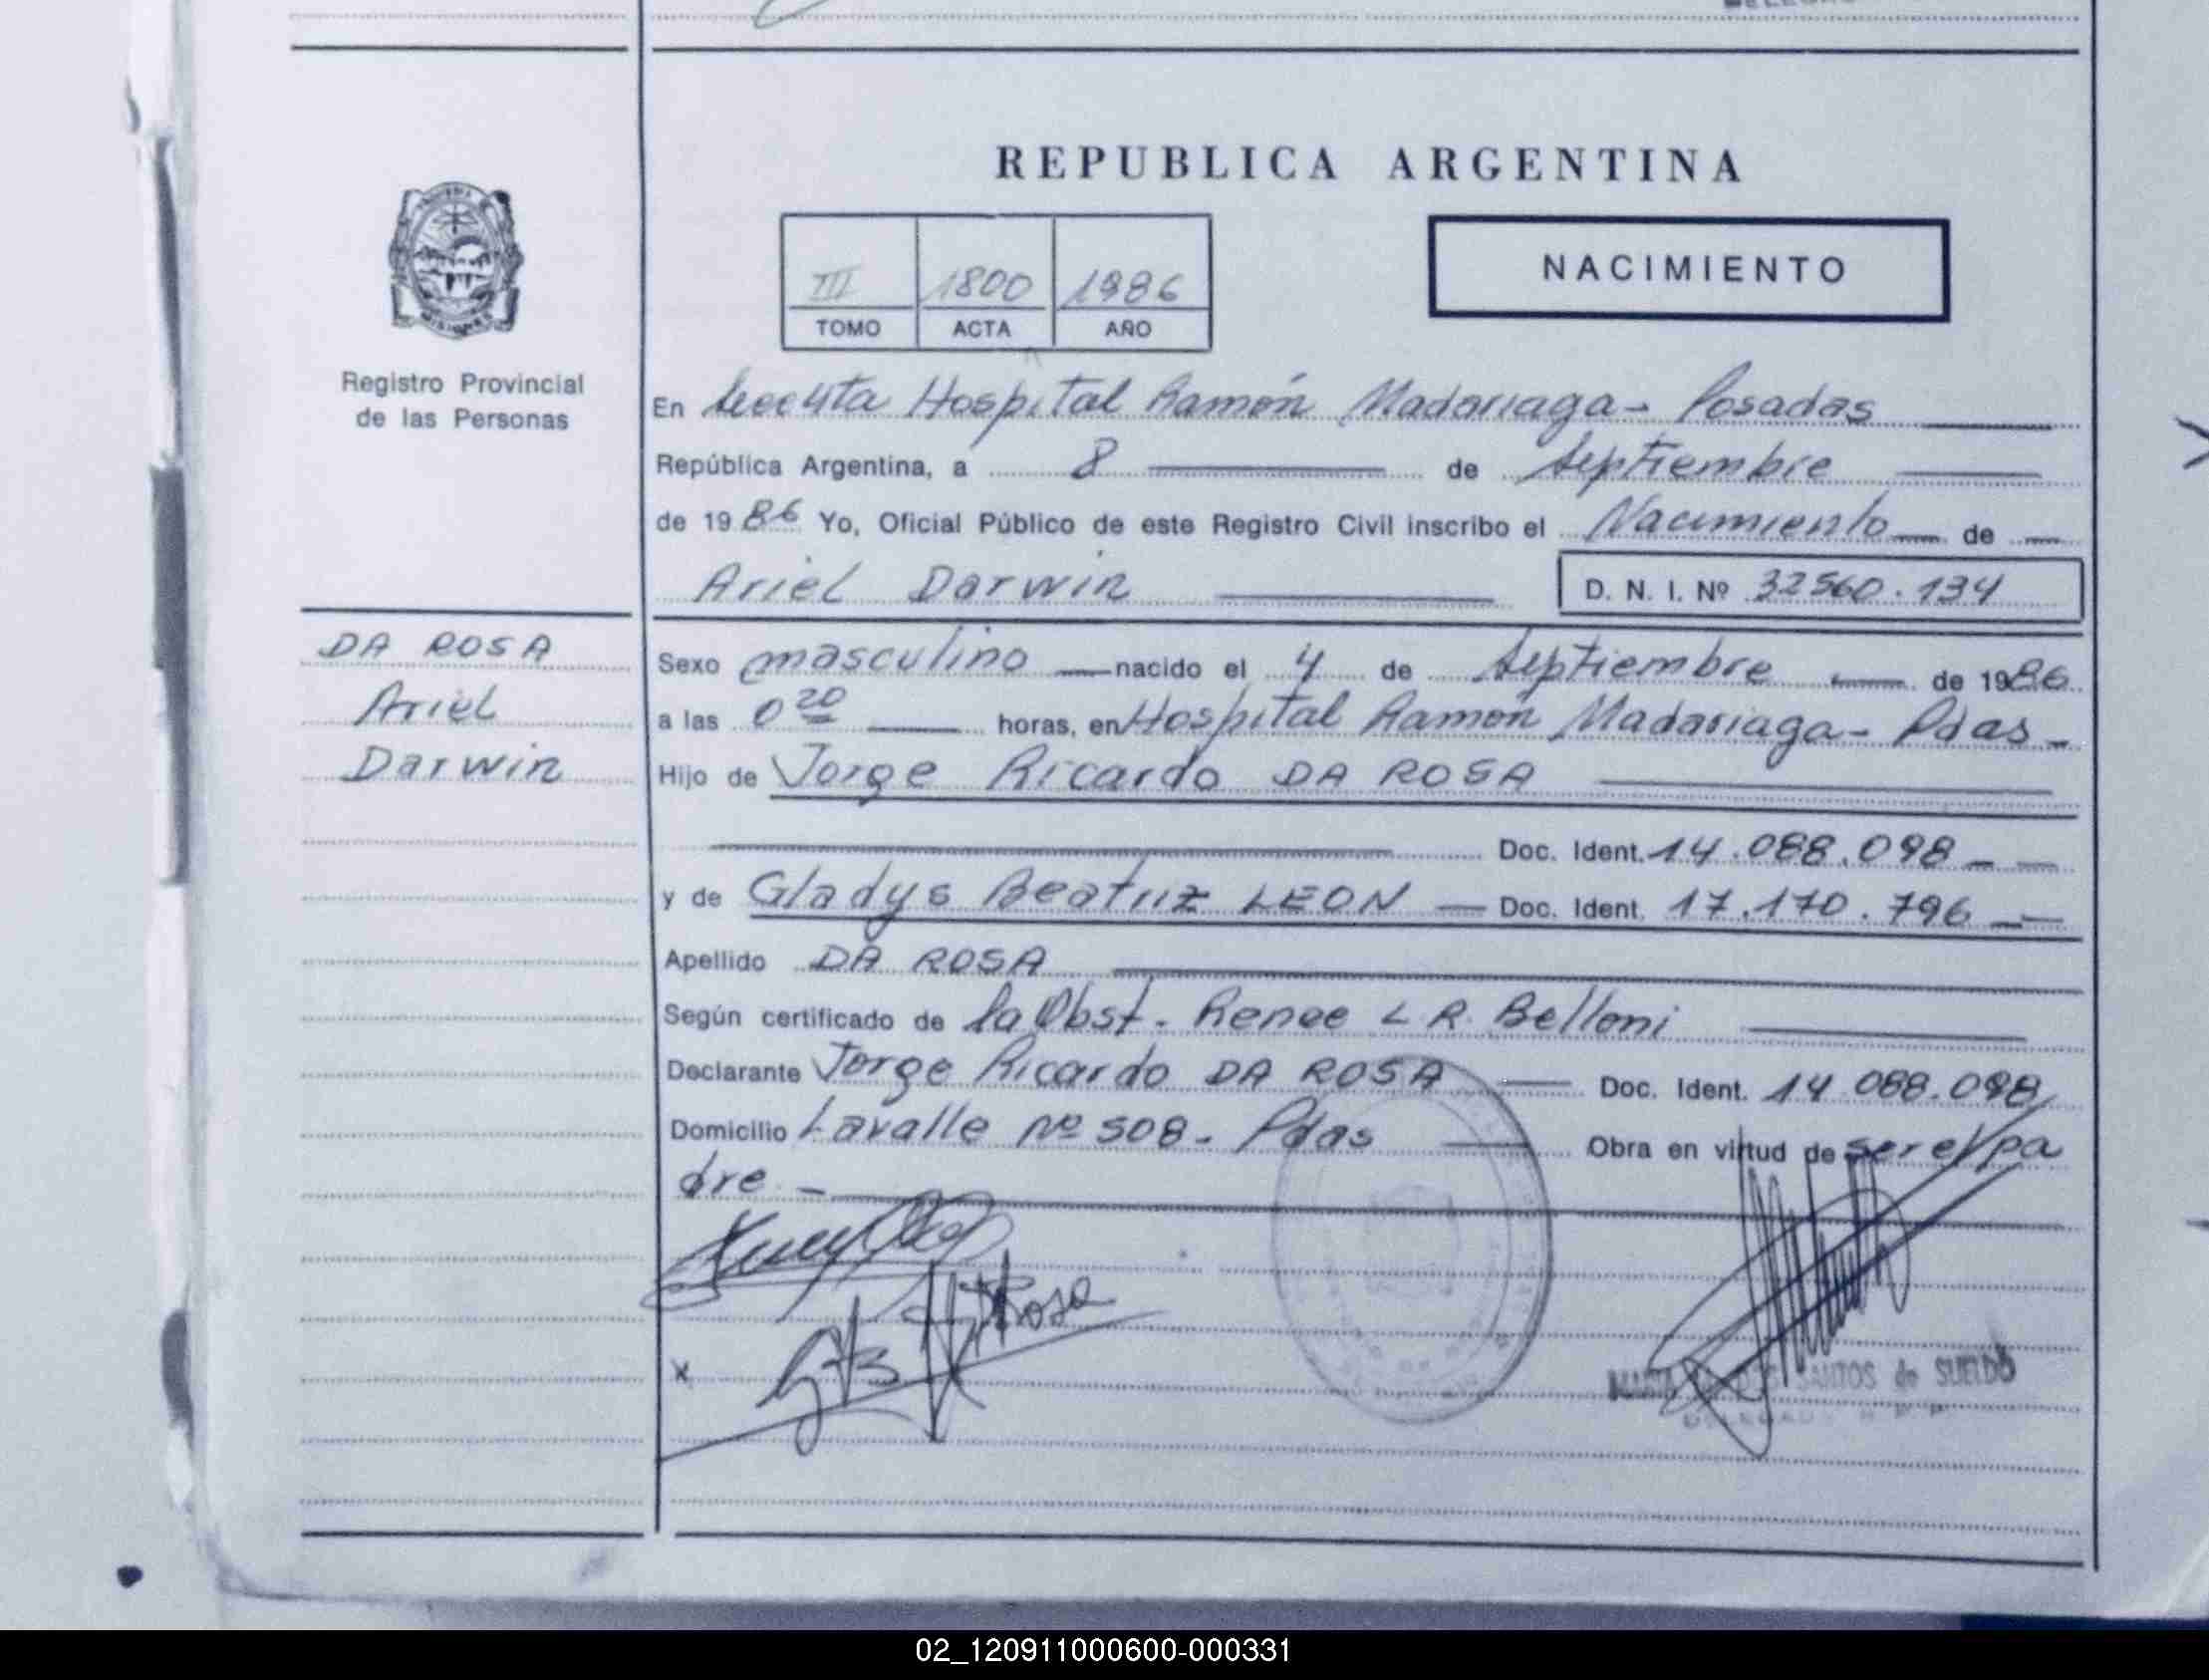 REPUBLICA ARGENTINA
III 1800 1986
TOMO ACTA AÑO
NACIMIENTO
MISIONES
Registro Provincial
de las Personas
En Hospital Ramón Madariaga - Posadas
República Argentina, a 8 de Septiembre
de 1986 Yo, Oficial Público de este Registro Civil inscribo el Nacimiento de
Ariel Darwin D. N. I. Nº 32560.134
DA ROSA
Ariel
Darwin
Sexo masculino nacido el 4 de Septiembre de 1986
a las 0 20 horas, en Hospital Ramón Madariaga - Pdas -
Hijo de Jorge Ricardo DA ROSA
Doc. Ident. 14.088.098
y de Gladys Beatriz LEON Doc. Ident. 17.170.796
Apellido DA ROSA
Según certificado de la Obst. Renee L R Belloni
Declarante Jorge Ricardo DA ROSA Doc. Ident. 14.088.098
Domicilio Lavalle Nº 508 - Pdas Obra en virtud de ser el pa
dre -
Rosa
x
SANTOS de SUELDO
02_120911000600-000331